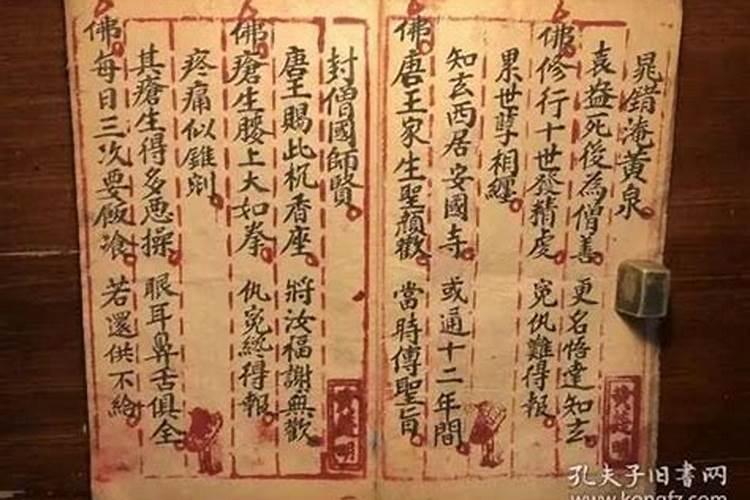 晁錯淹黃泉
袁盎死後為僧善 更名悟達知玄
佛修行十世登精虔 冤仇難得報
累世孽相纏
知玄西居安國寺 或通十二年間
佛唐王家生聖顏歡 當時傳聖旨
封僧國師賢
唐王賜此杌香座 將汝福謝無歡
佛瘡生腰上大如拳 仇冤終得報
疼痛似錐剜
其瘡生得多惡操 眼耳鼻舌俱全
佛每日三次要飯飡 若還供不給
孔夫子旧書网